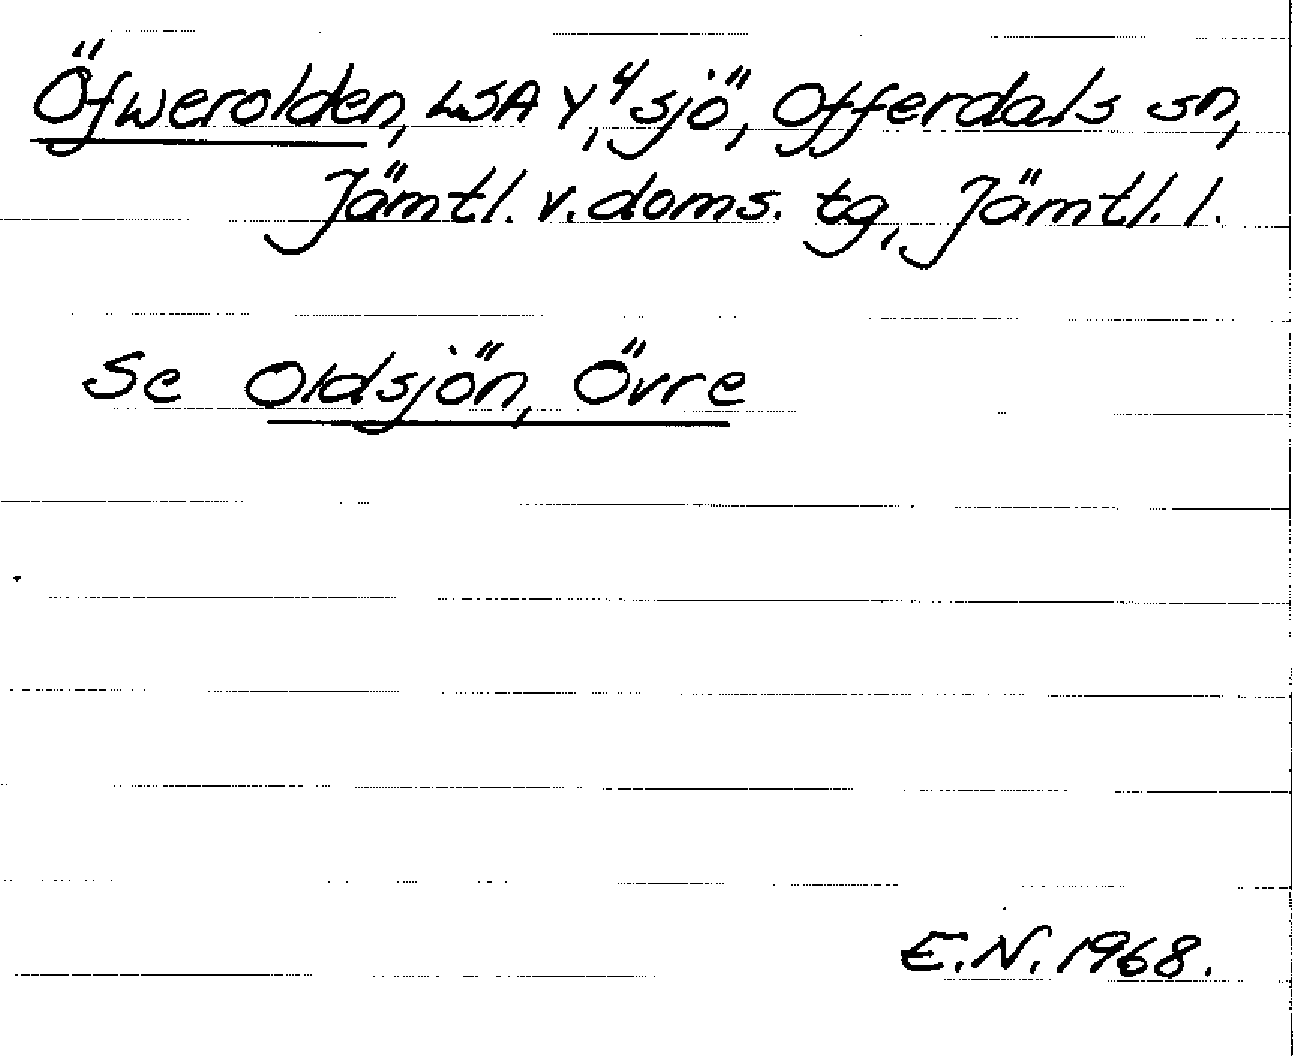 Öfwerolden, LSA Y, "sjö", Offerdals sn,
Jämtl. v. doms. tg, Jämtl. l.
Se Oldsjön, Övre
E.N. 1968.